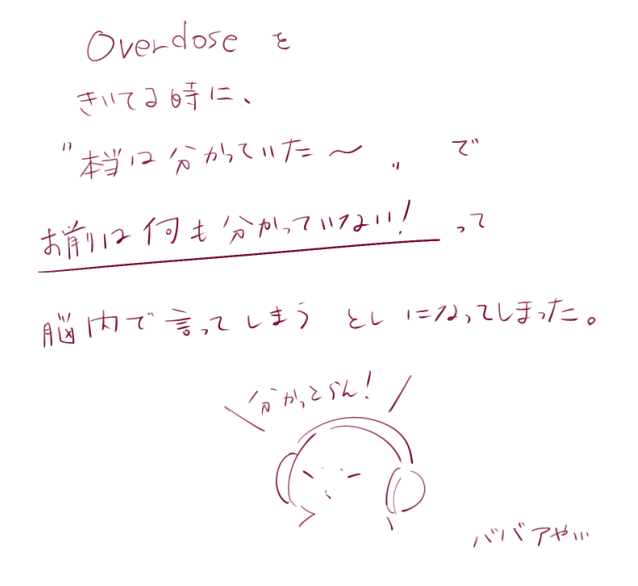 Overdose を
きいてる時に、
"本当は分かっていた〜" で
お前は何も分かっていない！って
脳内で言ってしまうとしになってしまった。
分かっとらん！
ババアや…